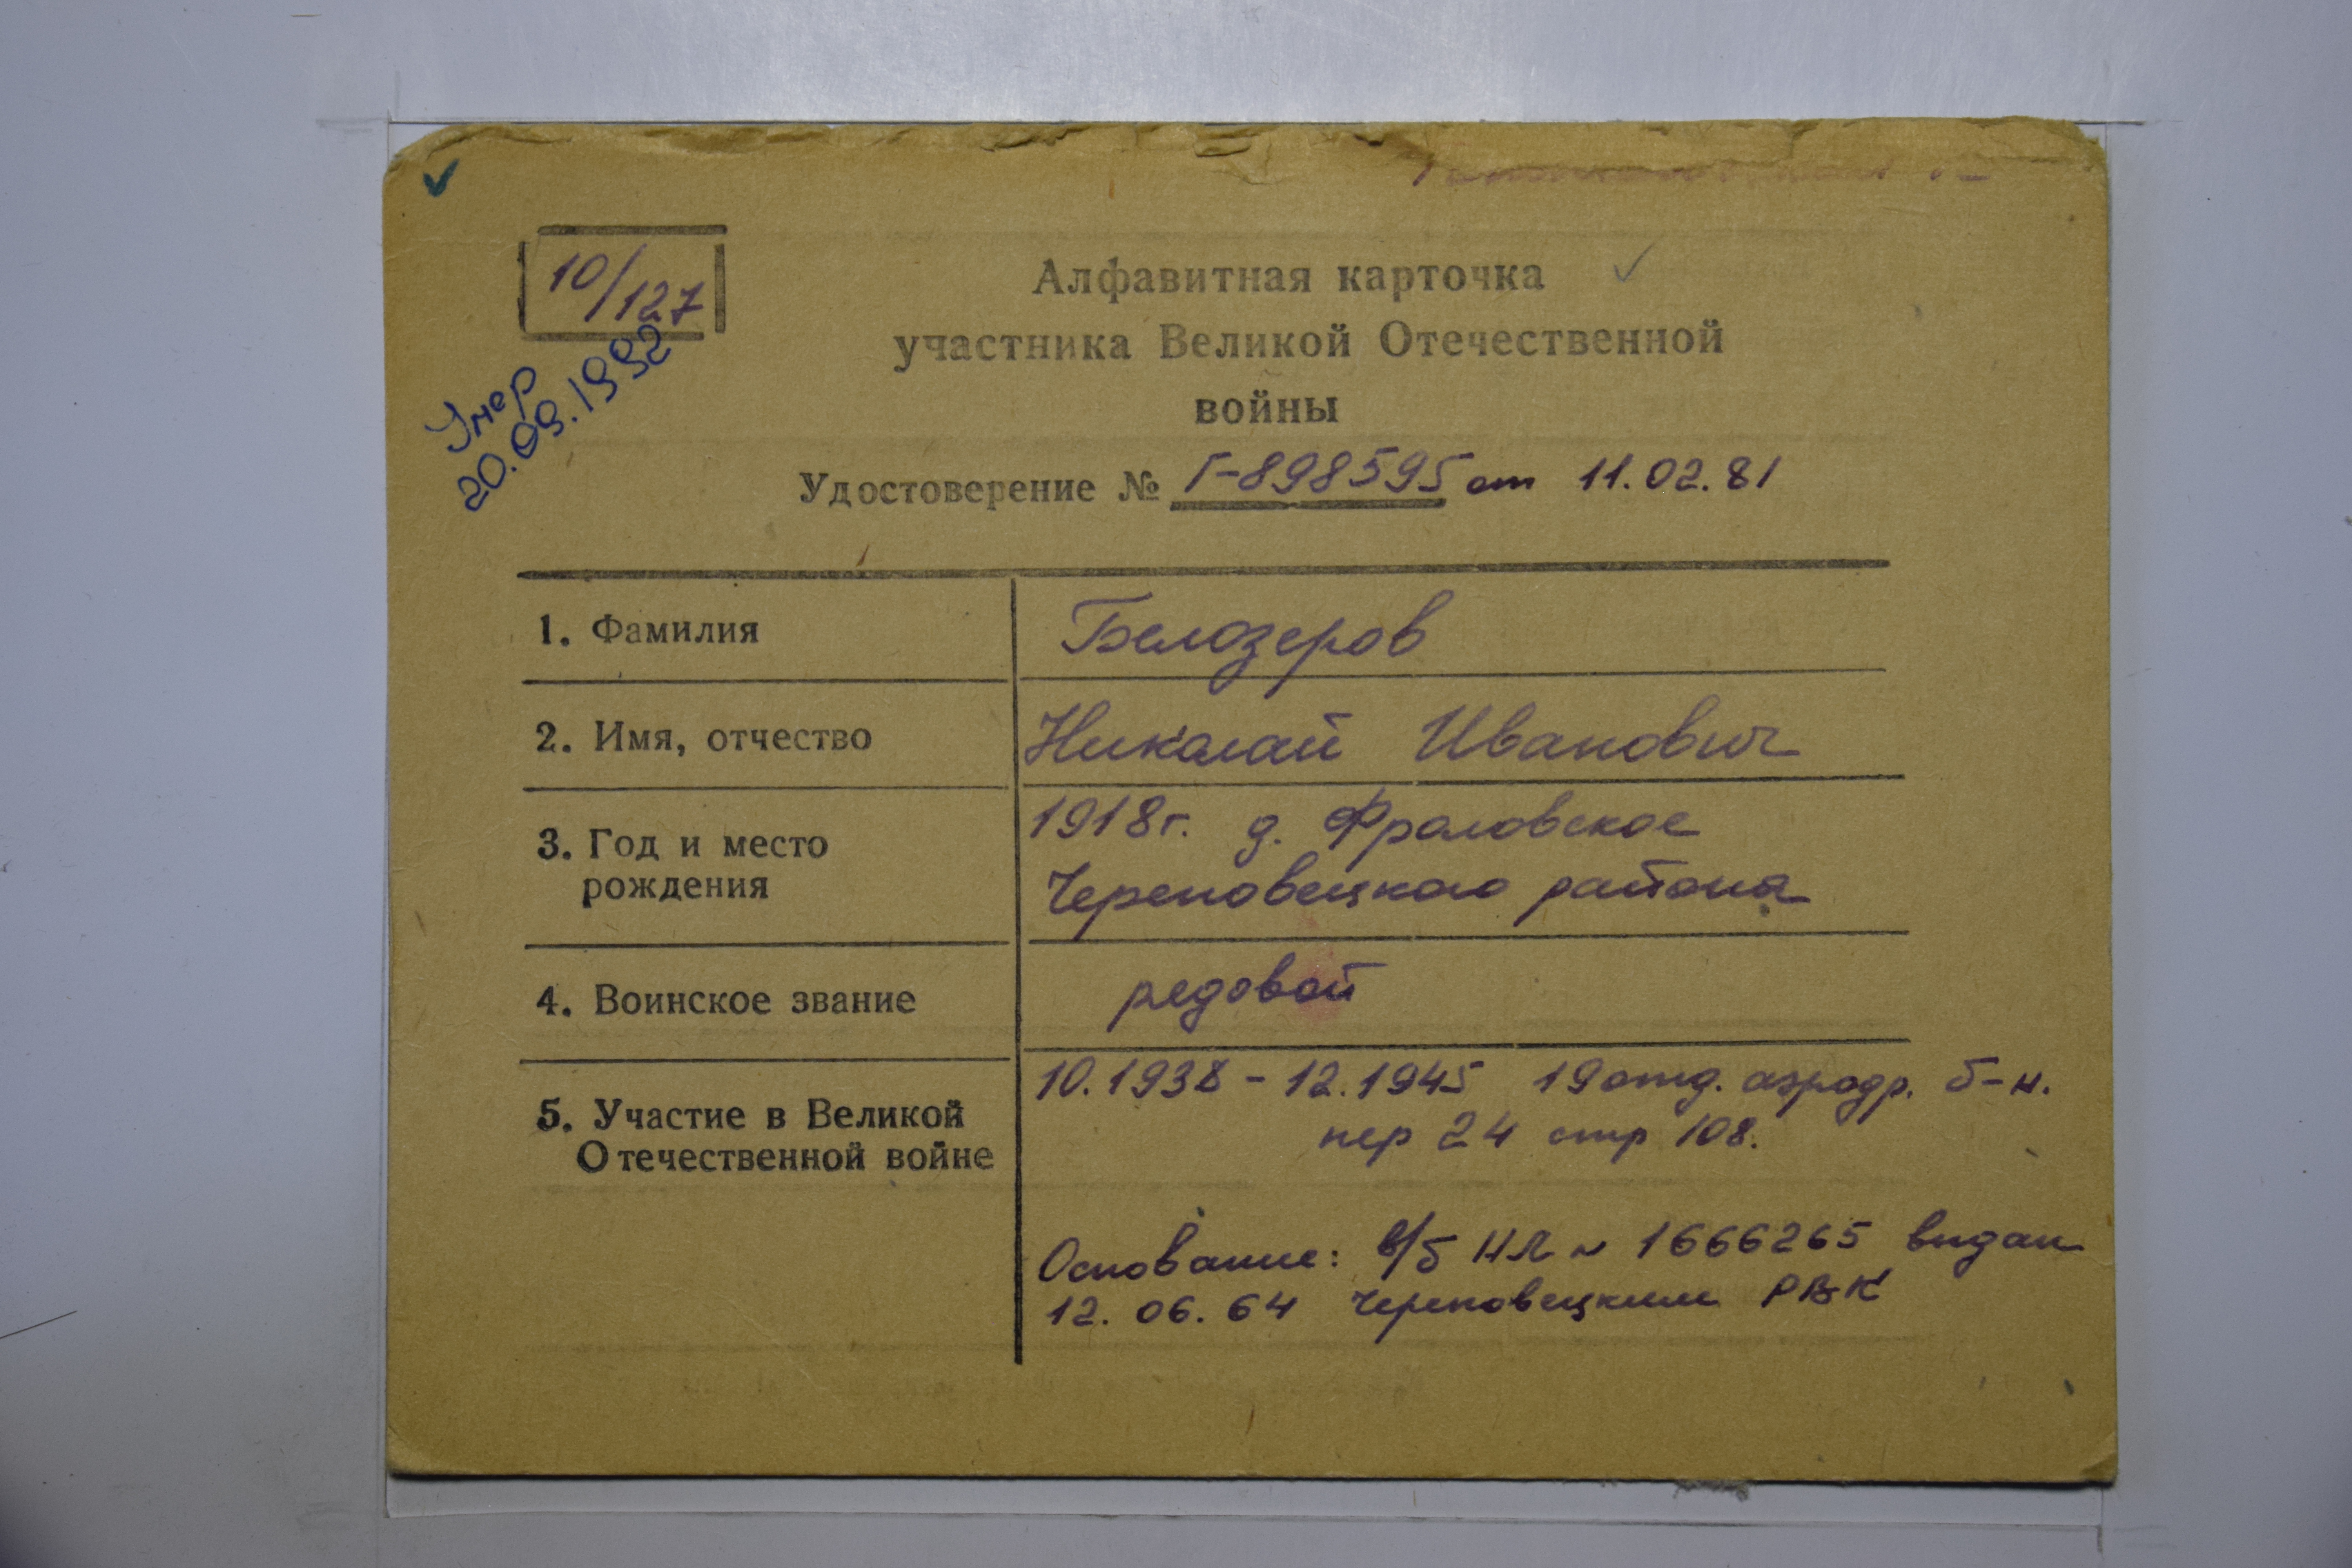 10/127
Умер
20.09.1992
Алфавитная карточка
участника Великой Отечественной
войны
Удостоверение № Г-898595 от 11.02.81
1. Фамилия
Белозеров
2. Имя, отчество
Николай Иванович
3. Год и место
рождения
1918г. д. Фроловское
Череповецкого района
4. Воинское звание
редовой
5. Участие в Великой
Отечественной войне
10.1938 - 12.1945 19 отд. аэродр. б-н.
пер 24 стр 108.
Основание: в/б НЛ N 1666265 выдан
12.06.64 Череповецким РВК